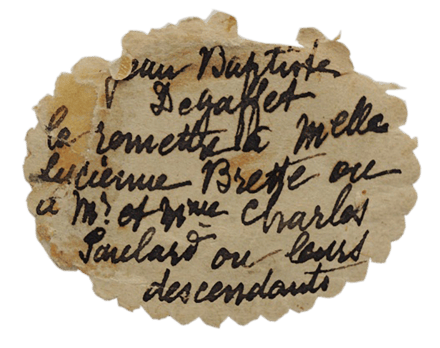 Jean Baptiste
Degaffet
le remettre à Melle
Lucienne Brette ou
à Mr. et Mme Charles
Paulard ou leurs
descendants